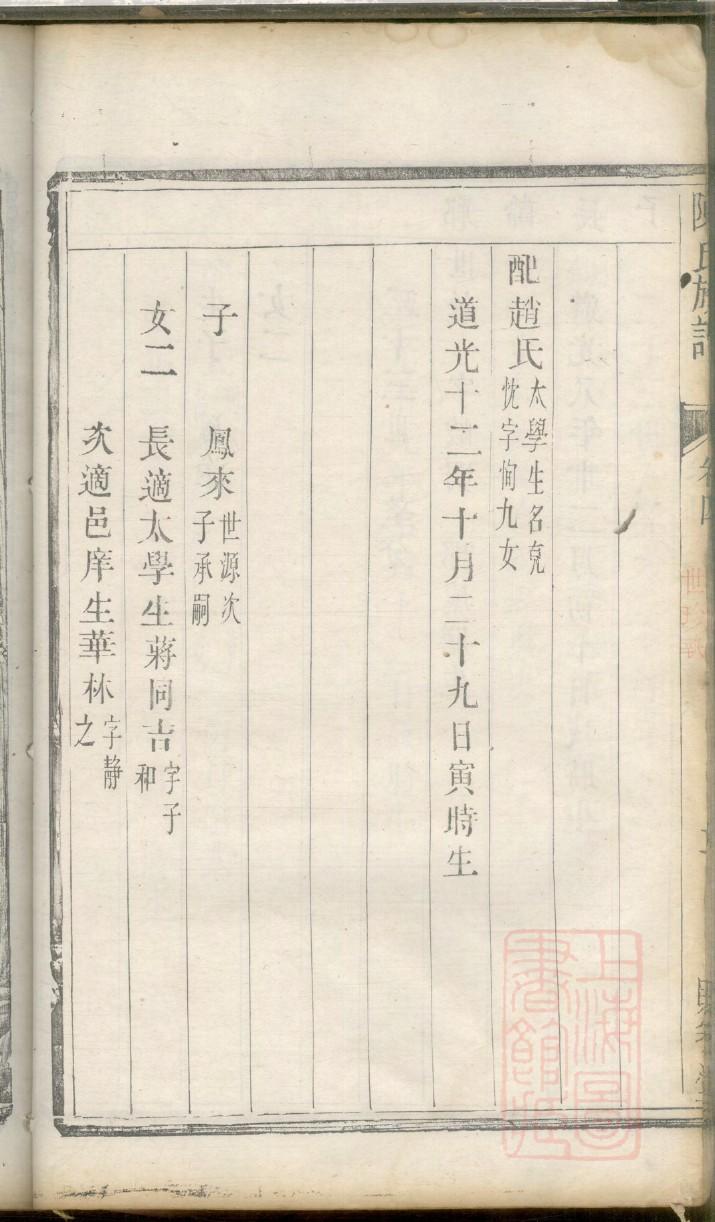 陳氏族譜
卷四
配趙氏太學生名堯忱字恂九女
道光十二年十月二十九日寅時生
子
鳳來世源次子承嗣
女二
長適太學生蔣同吉字子和
次適邑庠生華林字静之
上海圖書館藏